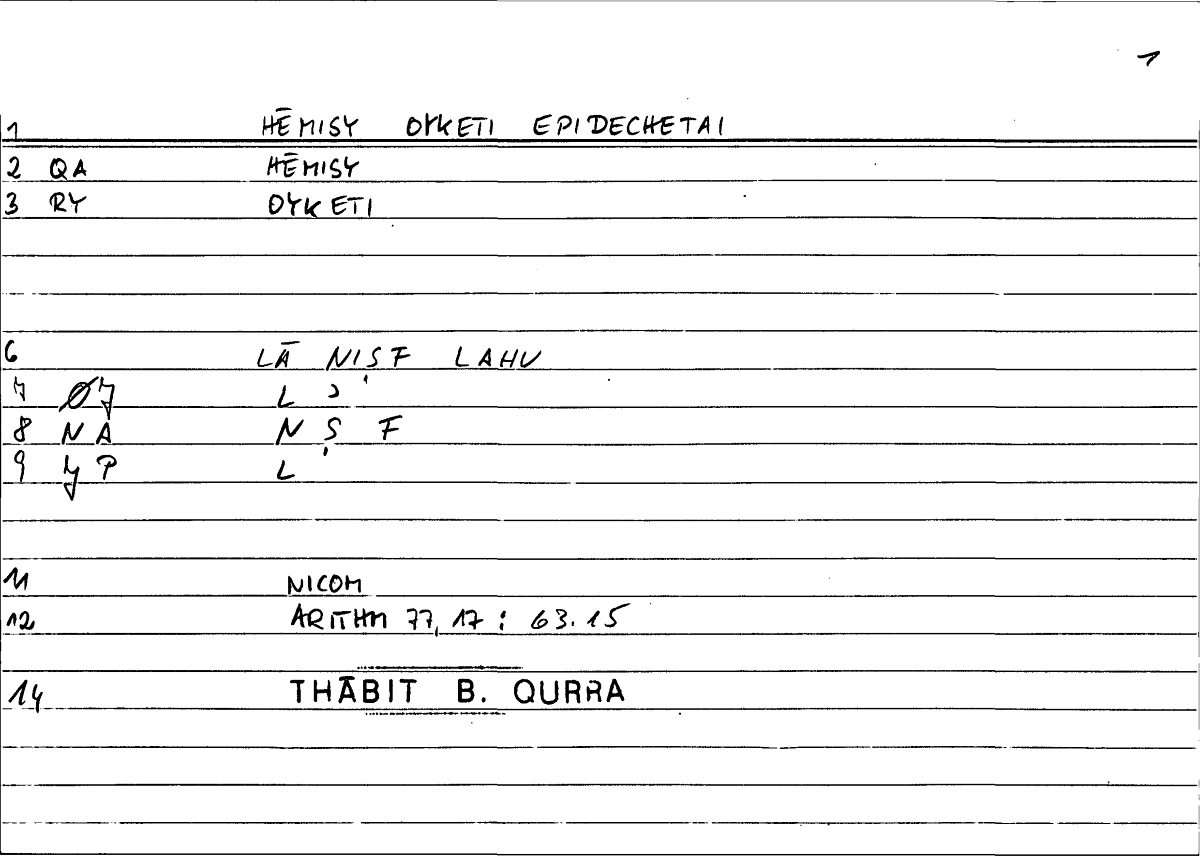 1
1 HĒMISY OYKETI EPIDECHETAI
2 QA HĒMISY
3 RY OYKETI
6 LĀ NIṢF LAHU
7 L
8 NA N Ṣ F
9 L
11 NICOM
12 ARITHM 77,17 : 63.15
14 THĀBIT B. QURRA